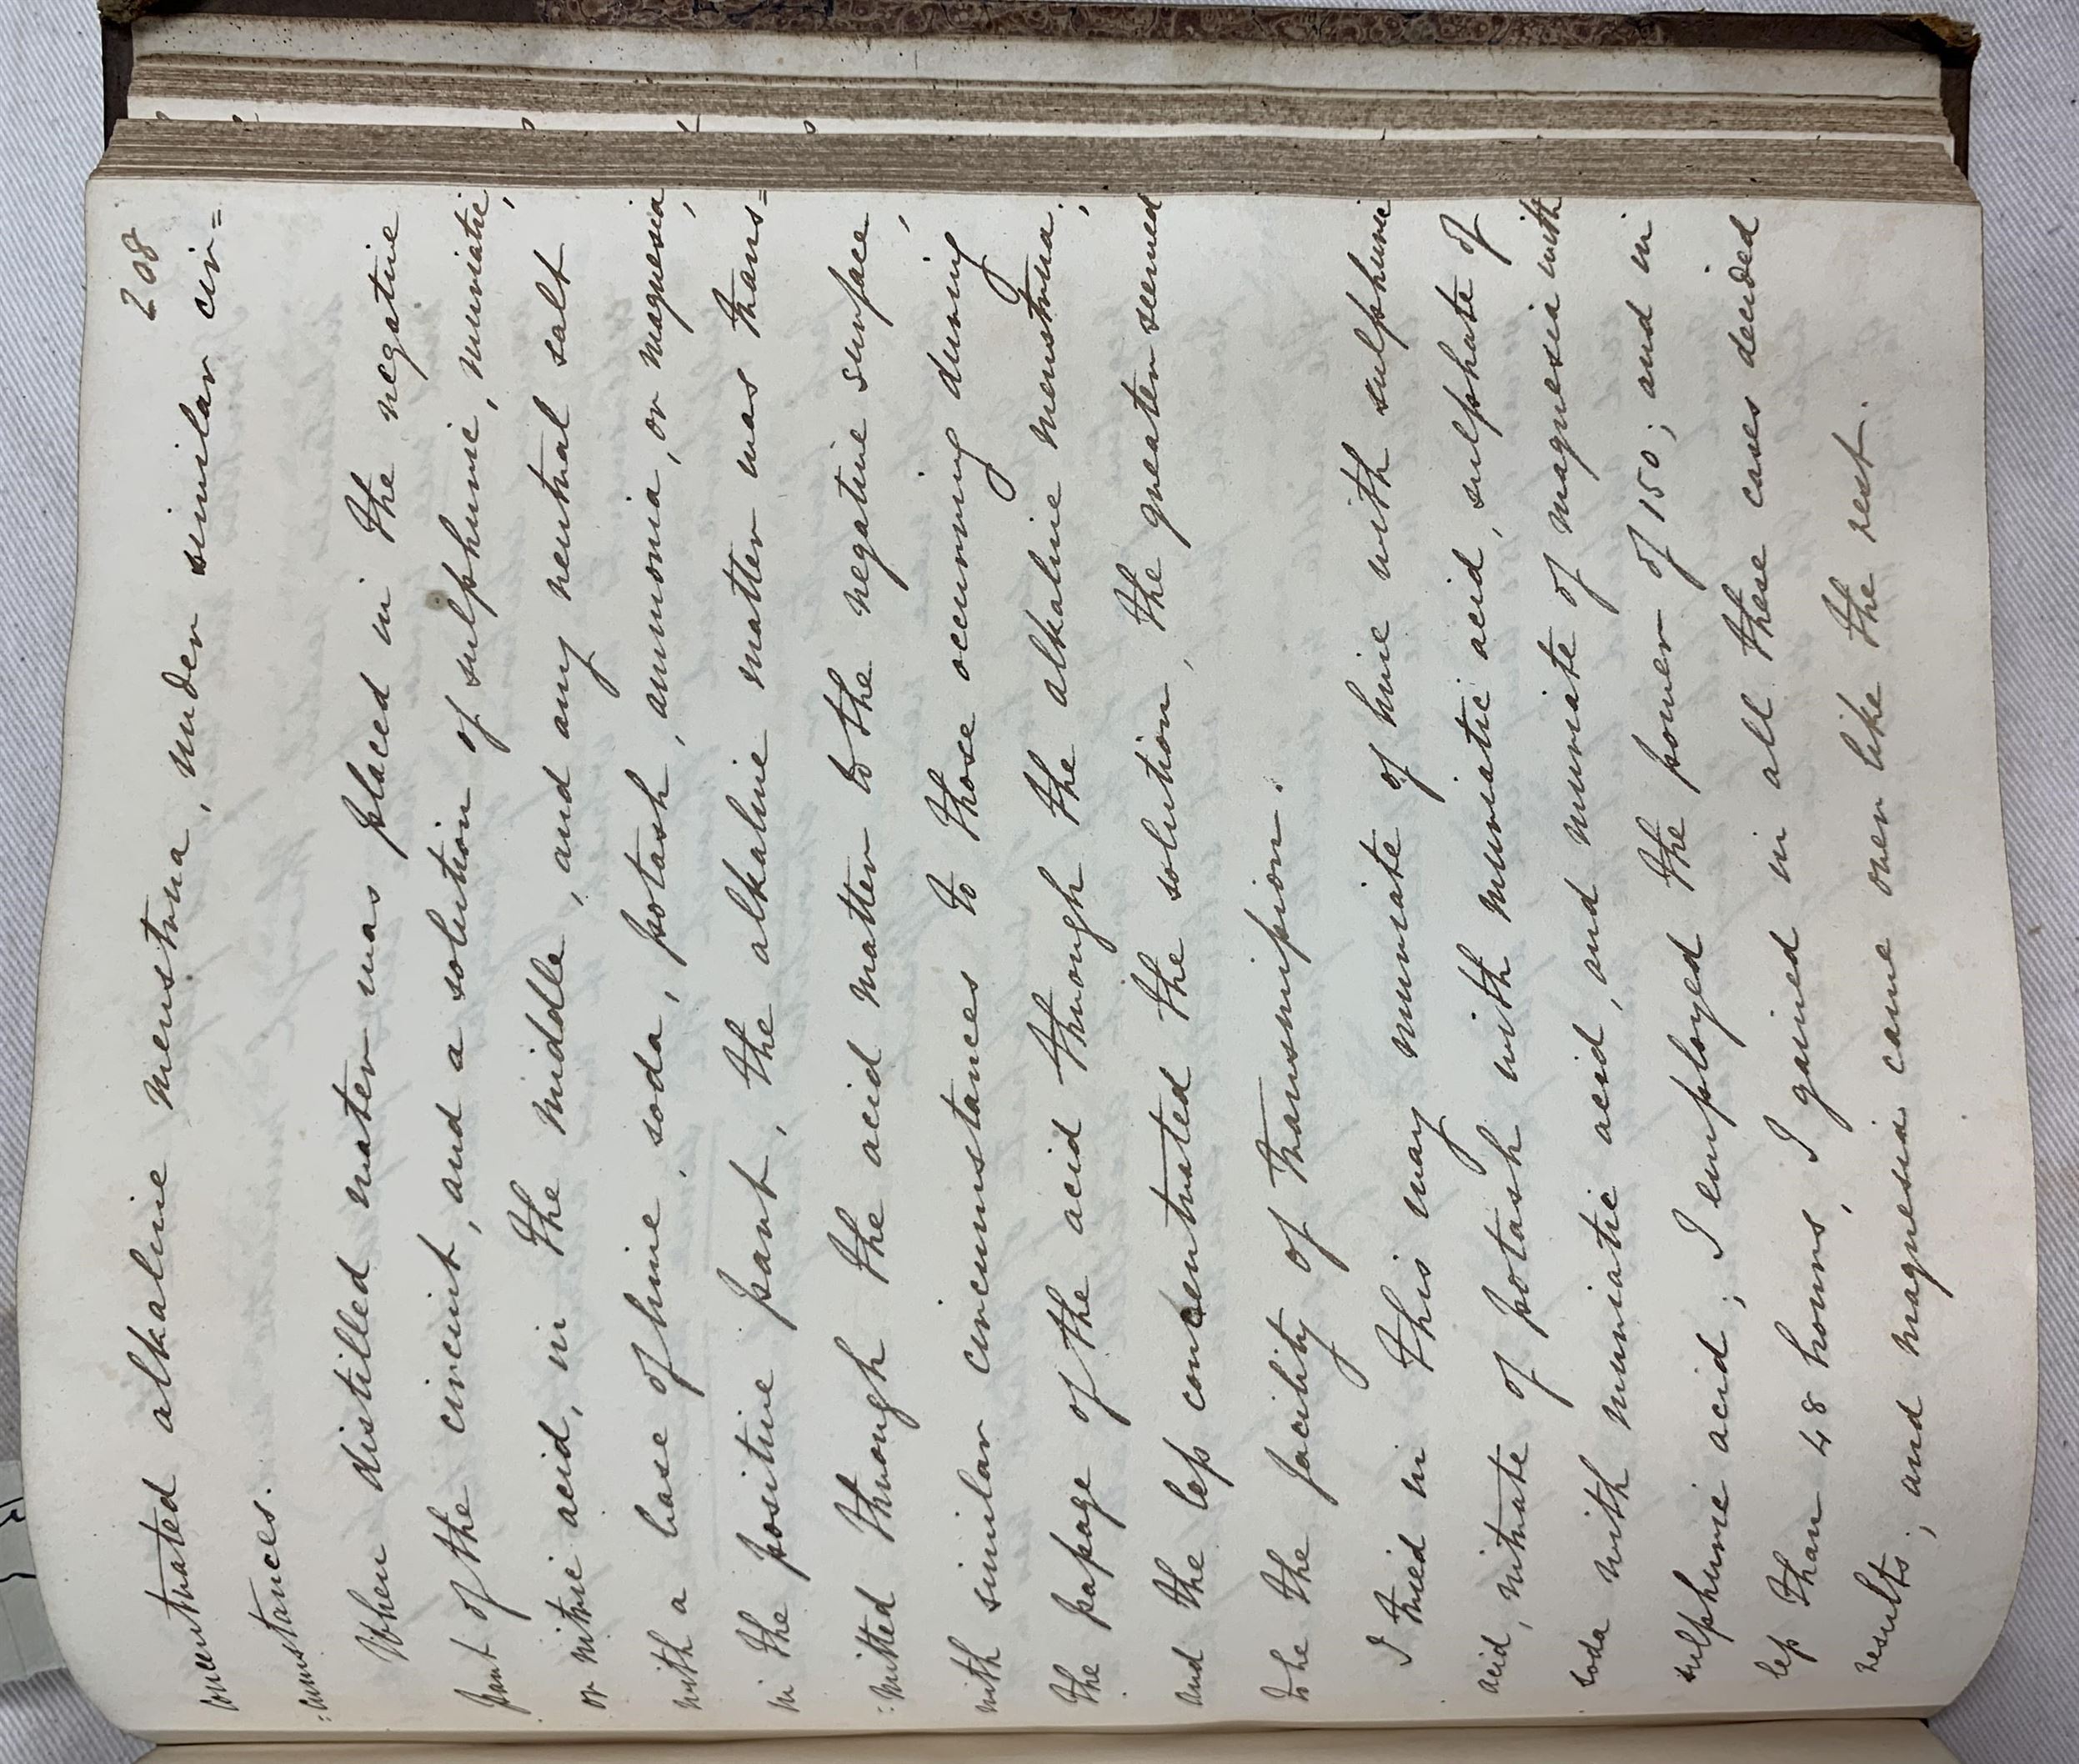 208
concentrated alkaline menstrua, under similar cir=
=cumstances.
When distilled water was placed in the negative
part of the circuit, and a solution of sulphuric, muriatic,
or nitric acid, in the middle, and any neutral salt
with a base of lime, soda, potash, ammonia, or magnesia,
in the positive part, the alkaline matter was trans=
=mitted through the acid matter to the negative surface,
with similar circumstances to those occurring during
the passage of the acid through the alkaline menstrua;
and the less concentrated the solution, the greater seemed
to be the facility of transmission.
I tried in this way muriate of lime with sulphuric
acid, nitrate of potash with muriatic acid, sulphate of
soda with muriatic acid, and muriate of magnesia with
sulphuric acid; I employed the power of 150; and in
less than 48 hours, I gained in all these cases decided
results; and magnesia came over like the rest.